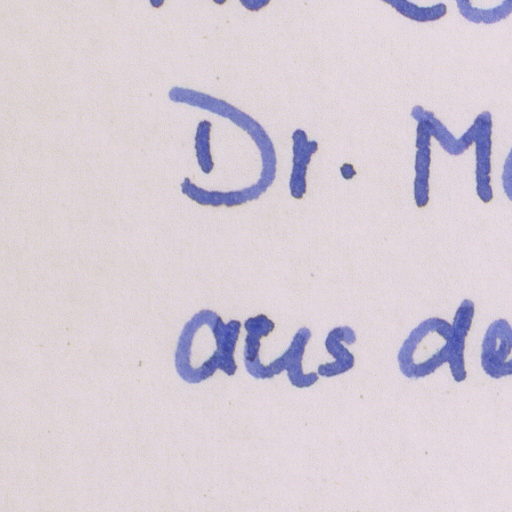 Dr. M
aus de